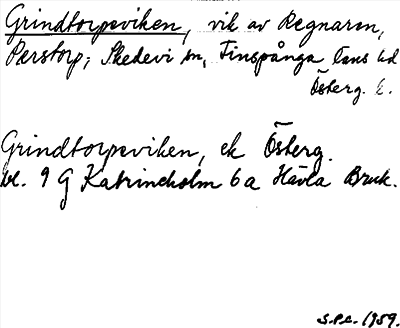 Grindtorpsviken, vik av Regnaren,
Perstorp; Skedevi sn, Finspånga läns hd
Österg. l.
Grindtorpsviken, ek Österg.
bl. 9 G Katrineholm 6a Hävla Bruk.
S.P.C. 1959.